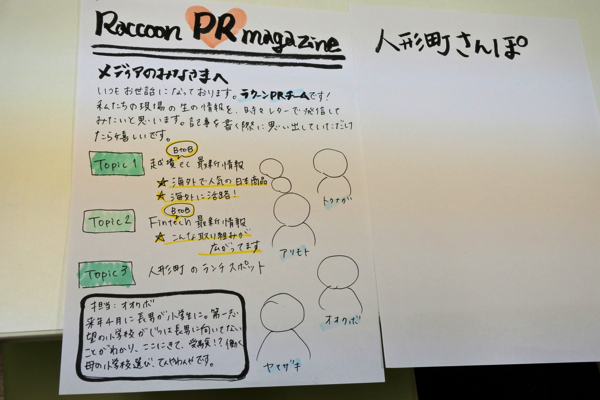 Raccoon PR magazine
メディアのみなさまへ
いつもお世話になっております。ラクーンPRチームです!
私たちの現場の生の情報を、時々レターで発信して
みたいと思います。記事を書く際に思い出していただけ
たら嬉しいです。
BtoB
Topic 1 越境EC 最新情報
★海外で人気の日本商品
★海外に活路!
BtoB
Topic 2 Fintech 最新情報
★こんな取り組みが
広がってます
Topic 3 人形町のランチスポット
トクナガ
アリモト
オオクボ
ヤマザキ
担当:オオクボ
来年4月に長男が小学生に。第一志
望の小学校がじつは長男に向いてない
ことがわかり、ここにきて、受験!?働く
母の小学校選び、てんやわんやです。
人形町さんぽ